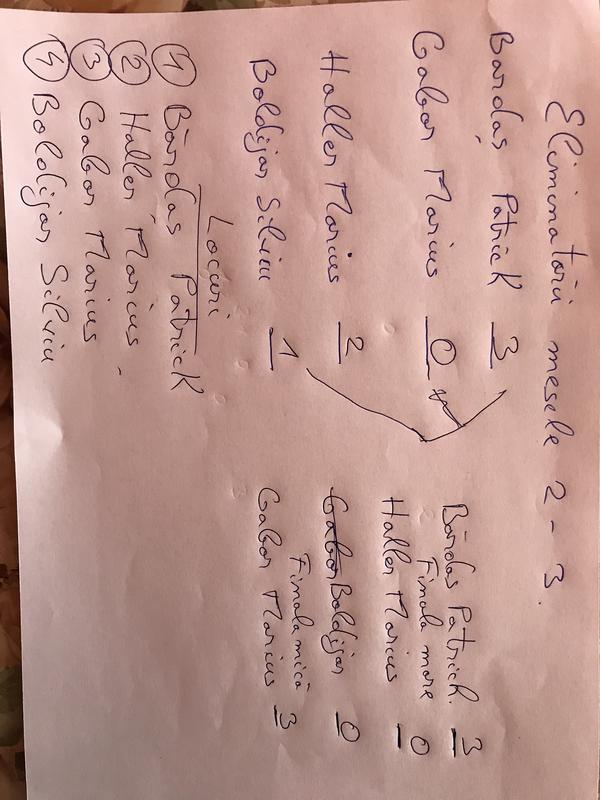 Eliminatorii mesele 2-3.
Bardas Patrick 3
Gabor Marius 0
Haller Marius 2
Boldijar Silviu 1
Bardas Patrick. 3
Finala mare
Haller Marius 0
Gabor Boldijar 0
Finala mică
Gabor Marius 3
Locuri
1 Bardas Patrick
2 Haller Marius
3 Gabor Marius
4 Boldijar Silviu